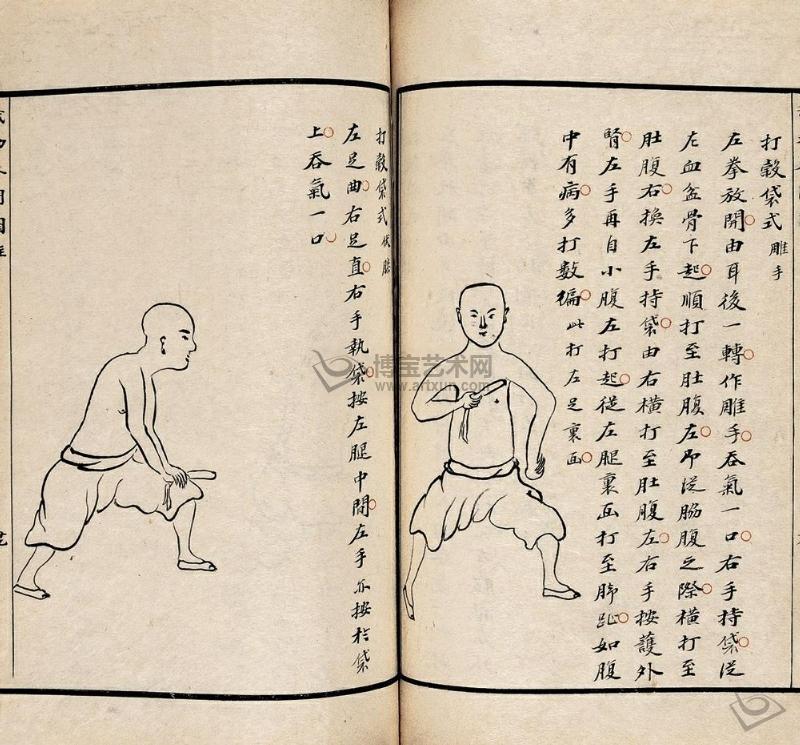 打穀袋式 雕手
左拳放開由耳後一轉作雕手吞氣一口右手持袋從
左血盆骨下起順打至肚腹左即從肠腹之際橫打至
肚腹右換左手持袋由右橫打至肚腹左右手按護外
腎左手再自小腹左打起從左腿裏面打至腳趾如腹
中有病多打數徧此打左足裏面
打穀袋式 伏膝
左足曲右足直右手執袋按左腿中間左手亦按於袋
上吞氣一口
博宝艺术网
www.artxun.com